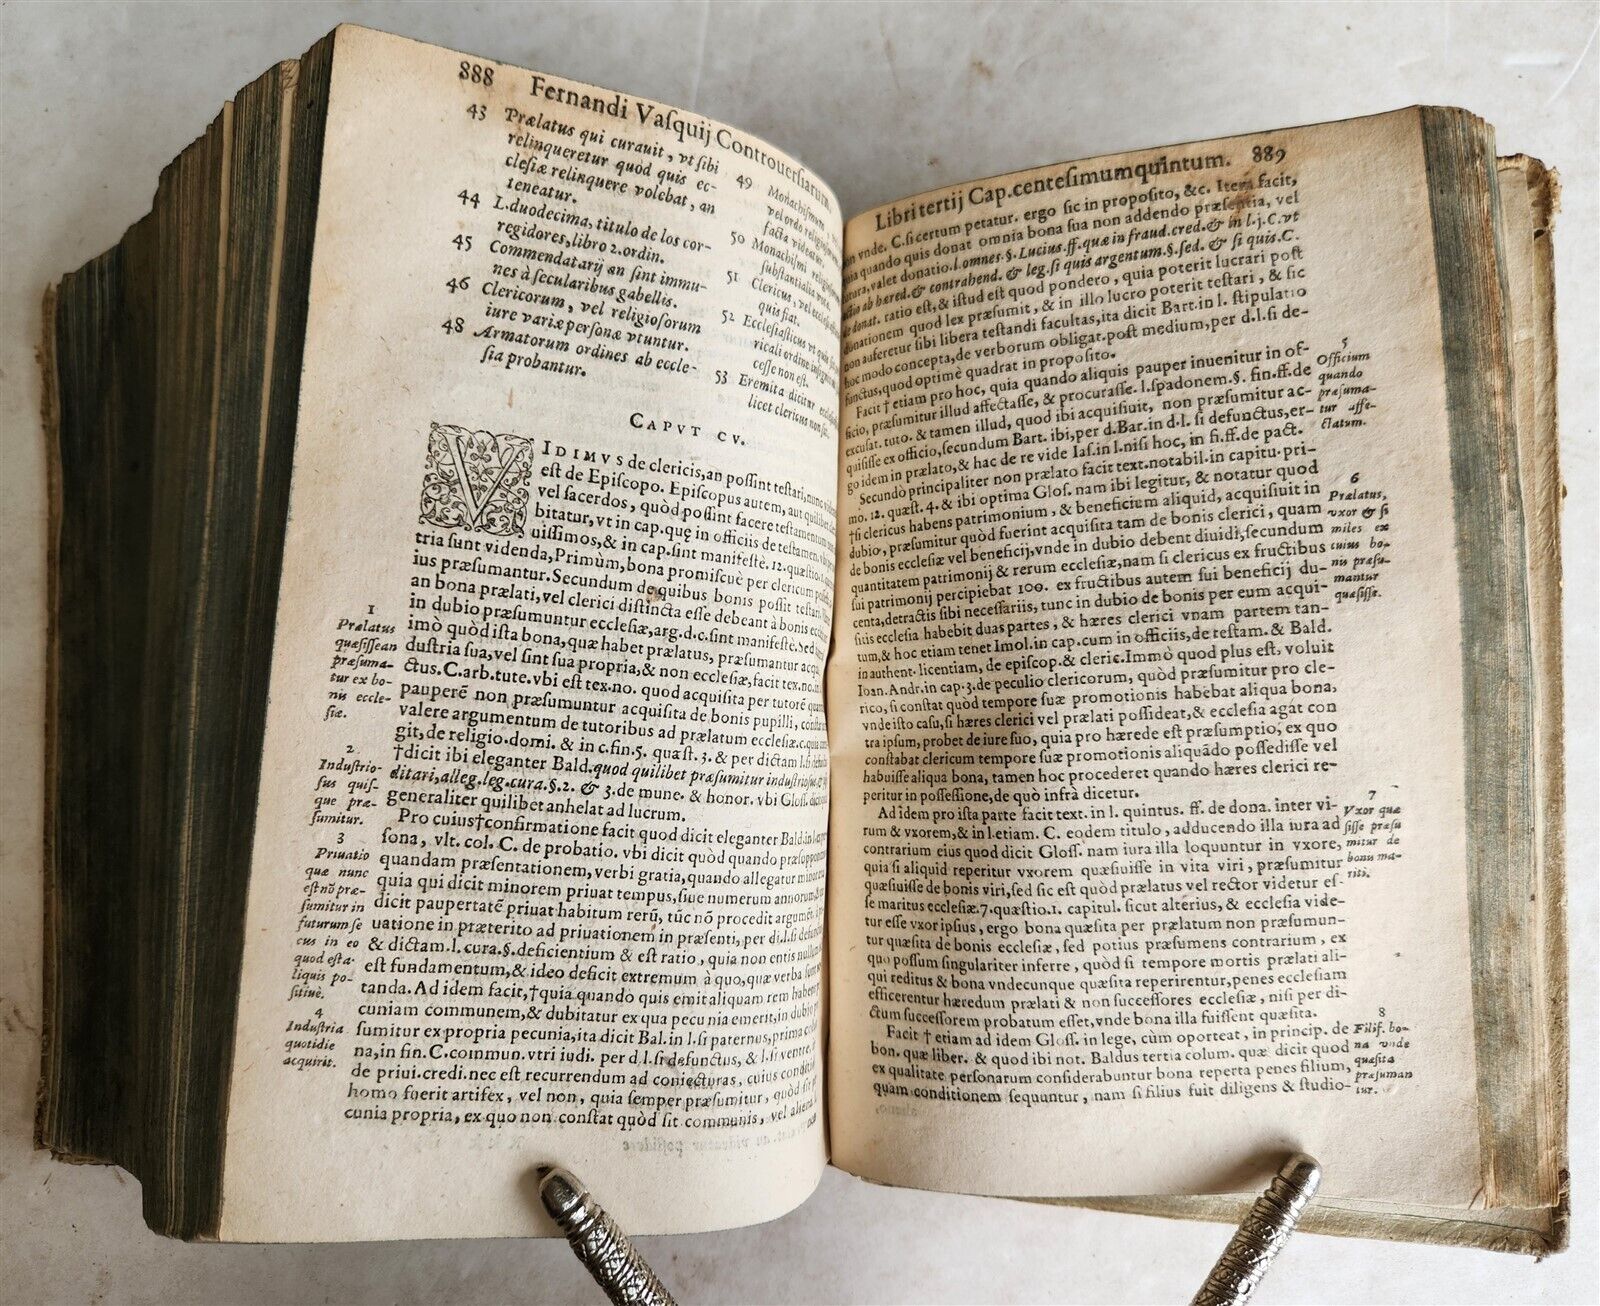 888 Fernandi Vaſquij Controuerſiarum,
43 Prælatus qui curauit, vt ſibi
relinqueretur quòd quis ec-
cleſiæ relinquere volebat, an
teneatur.
44 L. duodecima, titulo de los cor-
regidores, libro 2. ordin.
45 Commendatarij an ſint immu-
nes à ſecularibus gabellis.
46 Clericorum, vel religioſorum
iure variæ perſonæ vtuntur.
48 Armatorum ordines ab eccle-
ſia probantur.
49 Monachiſmum
vel ordo religio
facta videatur.
50 Monachiſmi religio
ſubſtantialia
51 Clericus, vel eccle
quis fiat.
52 Eccleſiaſticus vt quis
ricali ordine inſign
ceſſe non eſt.
53 Eremita dicitur eccle
licet clericus non ſit.
CAPVT CV.
VIDIMVS de clericis, an poſſint teſtari, nunc viden
eſt de Epiſcopo. Epiſcopus autem, aut quilibet
vel ſacerdos, quòd poſſint facere teſtamentum
bitatur, vt in cap. quę in officiis de teſtamen.
uiſſimos, & in cap. ſint manifeſtè. 12. quæſtio. 1.
tria ſunt videnda, Primùm, bona promiſcuè per clericum
ius præſumantur. Secundum de quibus bonis poſſit teſtari.
an bona prælati, vel clerici diſtincta eſſe debeant à bonis eccle
in dubio præſumuntur eccleſiæ, arg. d. c. ſint manifeſtè. Sed
imò quòd iſta bona, quæ habet prælatus, præſumantur acqui
duſtria ſua, vel ſint ſua propria, & non eccleſiæ, facit tex. no. in
ctus. C. arb. tute. vbi eſt tex. no. quod acquiſita per tutorē quan
pauperē non præſumuntur acquiſita de bonis pupilli, conſtat
valere argumentum de tutoribus ad prælatum eccleſiæ. c. quia
git, de religio. domi. & in c. fin. 5. quæſt. 3. & per dictam l. ſi
†dicit ibi eleganter Bald. quod quilibet præſumitur induſtrioſus
ditari, alleg. leg. cura. §. 2. & 3. de mune. & honor. vbi Gloſſ. dicit
generaliter quilibet anhelat ad lucrum.
Pro cuius†confirmatione facit quod dicit eleganter Bald. in l.
ſona, vlt. col. C. de probatio. vbi dicit quòd quando præſuppon
quandam præſentationem, verbi gratia, quando allegatur minorit
quia qui dicit minorem priuat tempus, ſiue numerum annorum
dicit paupertatē priuat habitum rerū, tūc nō procedit argumēt.
uatione in præterito ad priuationem in præſenti, per d. l. ſi defun
& dictam. l. cura. §. deficientium & eſt ratio, quia non entis null
eſt fundamentum, & ideo deficit extremum à quo, quæ verba ſunt
tanda. Ad idem facit, †quia quando quis emit aliquam rem habens
cuniam communem, & dubitatur ex qua pecunia emerit, in dubio
ſumitur ex propria pecunia, ita dicit Bal. in l. ſi paternus, prima
na, in fin. C. commun. vtri iudi. per d. l. ſi defunctus, & l. ſi ventre
de priui. credi. nec eſt recurrendum ad coniecturas, cuius conditio
homo fuerit artifex, vel non, quia ſemper præſumitur, quòd ſit
cunia propria, ex quo non conſtat quòd ſit communis, vel aliena
1
Prælatus
quæſiſſe an
præſuma-
tur ex bo-
nis eccle-
ſiæ.
2
Induſtrio-
ſus quiſ-
que præ-
ſumitur.
3
Priuatio
quæ nunc
eſt nō præ-
ſumitur in
futurum ſe
cus in eo
quod eſt a-
liquis po-
ſitiuè.
4
Induſtria
quotidie
acquirit.
Libri tertij Cap. centeſimumquintum. 889
vnde. C. ſi certum petatur. ergo ſic in propoſito, &c. Item facit,
quia quando quis donat omnia bona ſua non addendo præſentia, vel
futura, valet donatio. l. omnes. §. Lucius. ff. quæ in fraud. cred. & in l. j. C. vt
actio ab hæred. & contrahend. & leg. ſi quis argentum. §. ſed. & ſi quis. C.
de donat. ratio eſt, & iſtud eſt quod pondero, quia poterit lucrari poſt
donationem quod lex præſumit, & in illo lucro poterit teſtari, & ſic
non auferetur ſibi libera teſtandi facultas, ita dicit Bart. in l. ſtipulatio
hoc modo concepta, de verborum obligat. poſt medium, per d. l. ſi de-
functus, quod optimè quadrat in propoſito.
Facit † etiam pro hoc, quia quando aliquis pauper inuenitur in of-
ficio, præſumitur illud affectaſſe, & procuraſſe. l. ſpadonem. §. fin. ff. de
excuſat. tuto. & tamen illud, quod ibi acquiſiuit, non præſumitur ac-
quiſiſſe ex officio, ſecundum Bart. ibi, per d. Bar. in d. l. ſi defunctus, er-
go idem in prælato, & hac de re vide Iaſ. in l. niſi hoc, in fi. ff. de pact.
Secundò principaliter non prælato facit text. notabil. in capitu. pri-
mo. 12. quæſt. 4. & ibi optima Gloſ. nam ibi legitur, & notatur quod
†ſi clericus habens patrimonium, & beneficium aliquid, acquiſiuit in
dubio, præſumitur quòd fuerint acquiſita tam de bonis clerici, quam
de bonis eccleſiæ vel beneficij, vnde in dubio debent diuidi, ſecundum
quantitatem patrimonij & rerum eccleſiæ, nam ſi clericus ex fructibus
ſui patrimonij percipiebat 100. ex fructibus autem ſui beneficij du-
centa, detractis ſibi neceſſariis, tunc in dubio de bonis per eum acqui-
ſitis eccleſia habebit duas partes, & hæres clerici vnam partem tan-
tum, & hoc etiam tenet Imol. in cap. cum in officiis, de teſtam. & Bald.
in authent. licentiam, de epiſcop. & cleric. Immò quod plus eſt, voluit
Ioan. Andr. in cap. 3. de peculio clericorum, quòd præſumitur pro cle-
rico, ſi conſtat quòd tempore ſuæ promotionis habebat aliqua bona,
vnde iſto caſu, ſi hæres clerici vel prælati poſſideat, & eccleſia agat con
tra ipſum, probet de iure ſuo, quia pro hærede eſt præſumptio, ex quo
conſtabat clericum tempore ſuæ promotionis aliquādo poſſediſſe vel
habuiſſe aliqua bona, tamen hoc procederet quando hæres clerici re-
peritur in poſſeſſione, de quò infrà dicetur.
Ad idem pro iſta parte facit text. in l. quintus. ff. de dona. inter vi-
rum & vxorem, & in l. etiam. C. eodem titulo, adducendo illa iura ad
contrarium eius quod dicit Gloſſ. nam iura illa loquuntur in vxore,
quia ſi aliquid reperitur vxorem quæſiuiſſe in vita viri, præſumitur
quæſiuiſſe de bonis viri, ſed ſic eſt quòd prælatus vel rector videtur eſ-
ſe maritus eccleſiæ. 7. quæſtio. 1. capitul. ſicut alterius, & eccleſia vide-
tur eſſe vxor ipſius, ergo bona quæſita per prælatum non præſumun-
tur quæſita de bonis eccleſiæ, ſed potius præſumens contrarium, ex
quo poſſum ſingulariter inferre, quòd ſi tempore mortis prælati ali-
qui reditus & bona vndecunque quæſita reperirentur, penes eccleſiam
efficerentur hæredum prælati & non ſucceſſores eccleſiæ, niſi per di-
ctum ſucceſſorem probatum eſſet, vnde bona illa fuiſſent quæſita.
Facit † etiam ad idem Gloſſ. in lege, cùm oporteat, in princip. de
bon. quæ liber. & quod ibi not. Baldus tertia colum. quæ dicit quod
ex qualitate perſonarum conſiderabuntur bona reperta penes filium,
quam conditionem ſequuntur, nam ſi filius fuit diligens & ſtudio-
5
Officium
quando
præſuma-
tur affe-
ctatum.
6
Prælatus,
vxor & ſi
miles ex
cuius bo-
nis præſu-
mantur
quæſiſſe.
7
Vxor quæ
ſiſſe præſu
mitur de
bonis ma-
riti.
8
Filiſ. bo-
na vnde
quæſita
præſuman
tur.